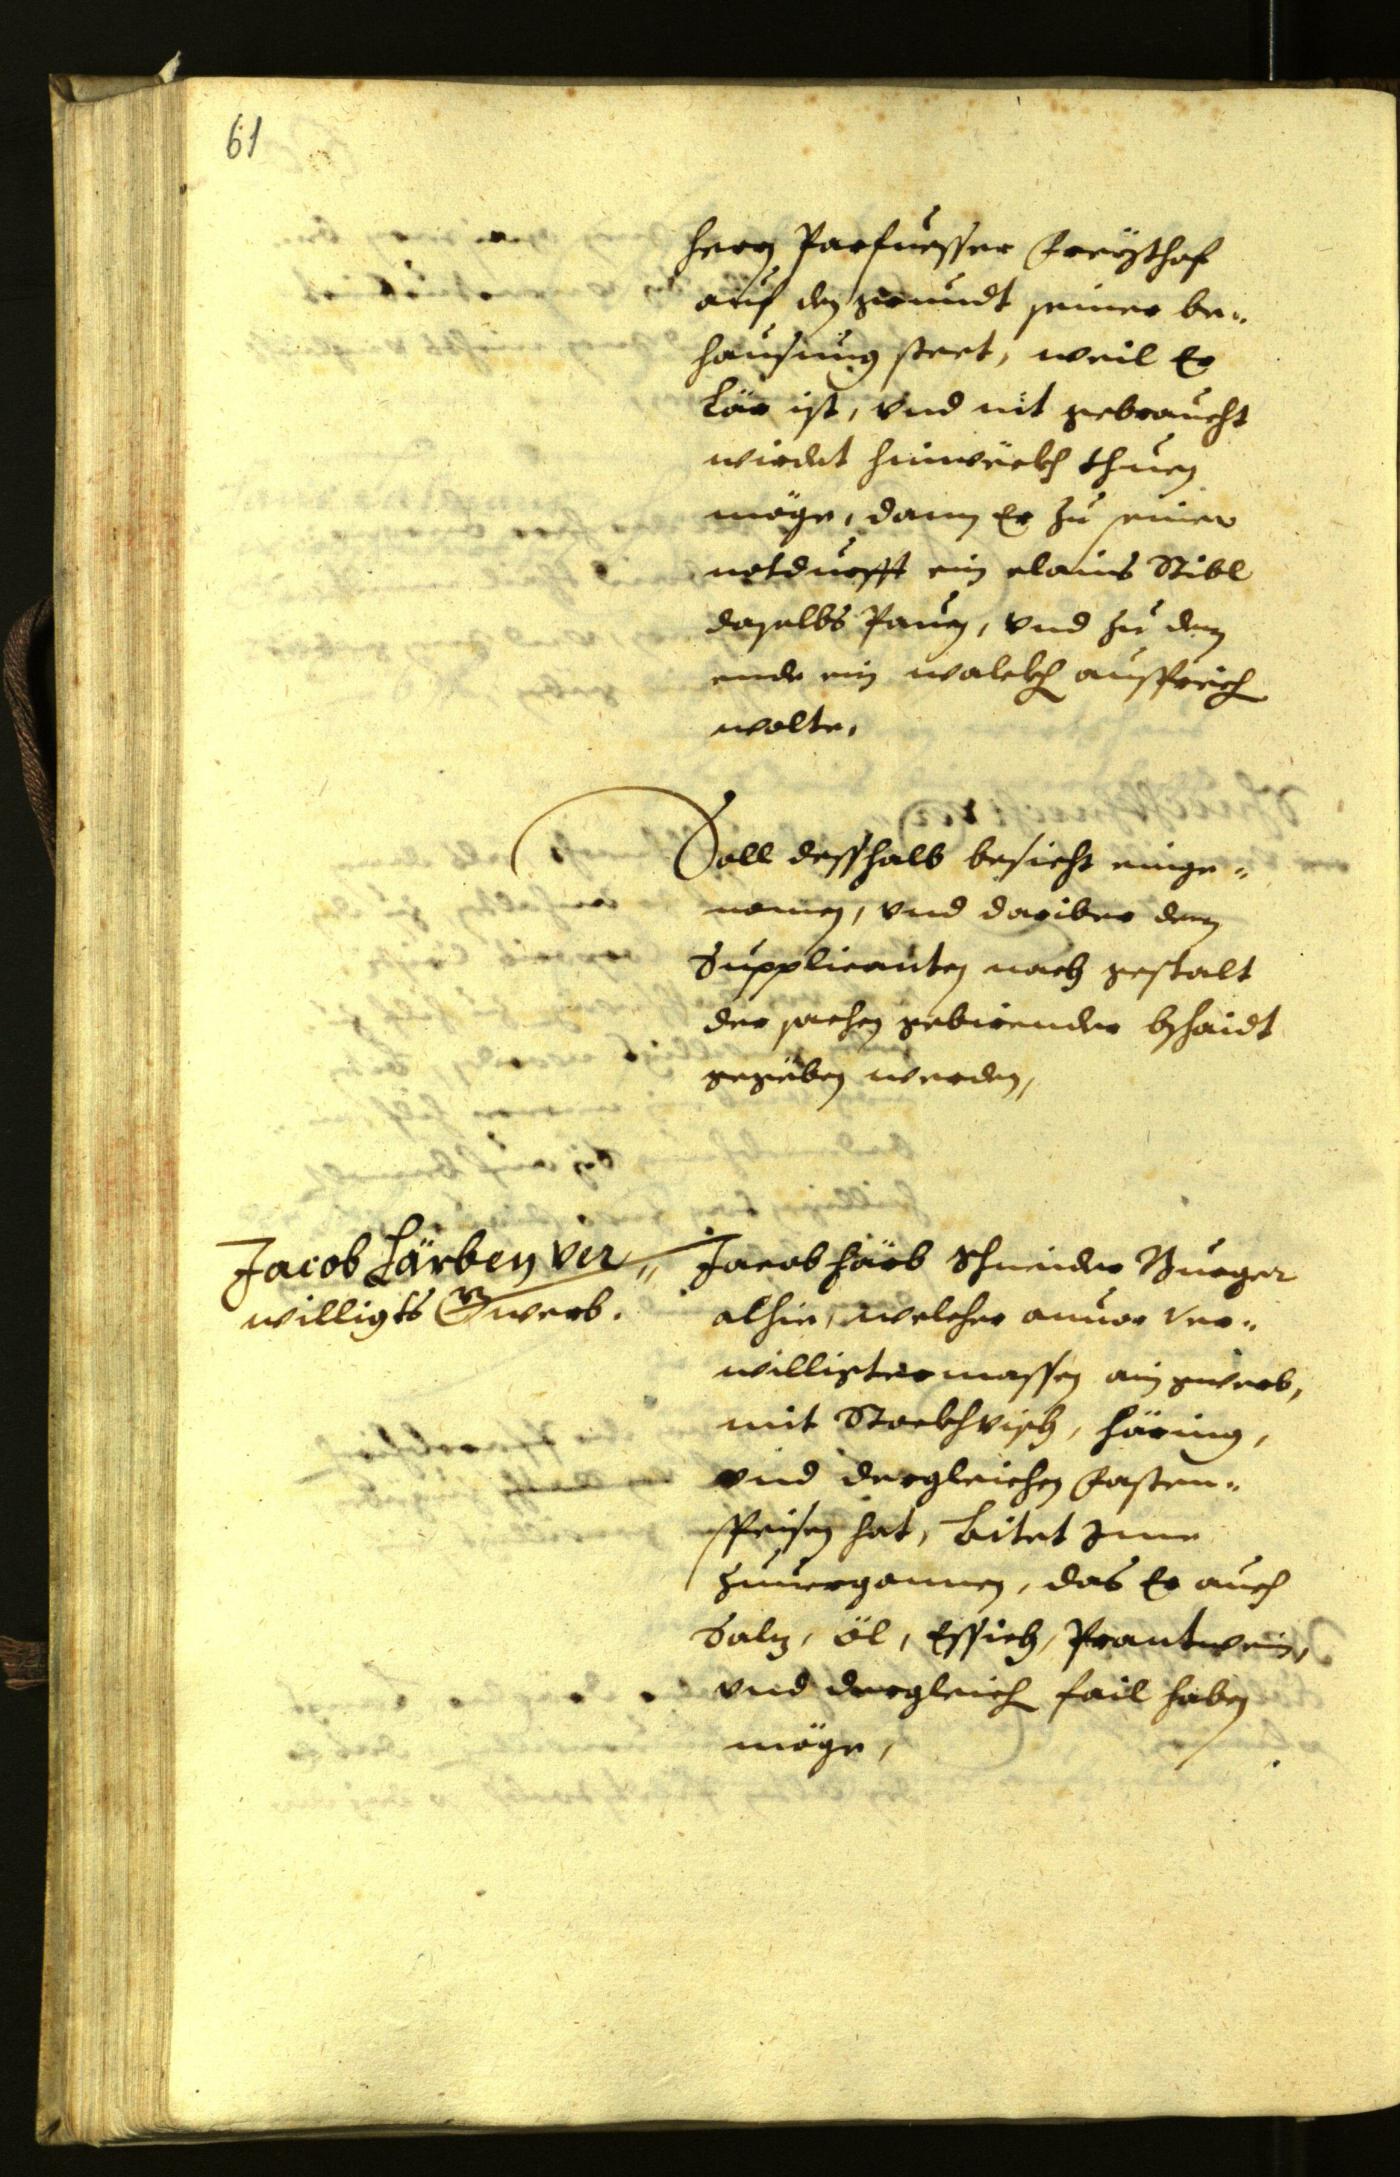 61
herrn Parfuesser Freythof
auf den grundt seiner be„
hausung steet, weil Er
Lär ist, vnd nit gebraucht
wirdet hinwëckh thuen
möge, dann Er zu seiner
notdurfft ein clains Stibl
daselbs Pauen, vnd zu dem
ende ein
wolte.
Soll desshalb besicht einge„
nomen, vnd dariber dem
Supplicanten nach gestalt
der sachen gebirender bschaidt
gegëben werden,
Jacob Härben ver„
willigts Gwerb.
Jacob Härb Schneider Burger
alhie, welcher anuor ver„
willigtermassen ain gwerb,
mit Stockhvisch, Häring,
vnd dergleichen Fasten„
speisen hat, bitet Ime
zuuergonnen, das Er auch
Salz, öl, Essich, Prantwein,
vnd dergleich fail haben
möge,